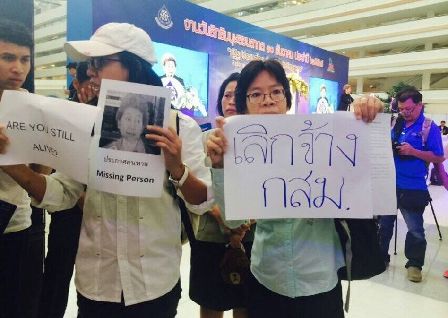 งานวันสิทธิมนุษยชนสากล ๑๐ ธันวาคม
ARE YOU STILL
ALIVE?
ประกาศคนหาย
Missing Person
เลิกข้าง
กสม.